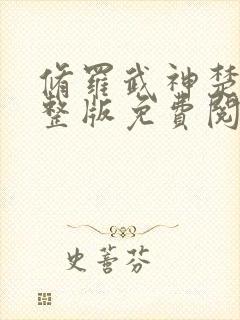 脩羅武神楚
整版免費閱
史蓍芬